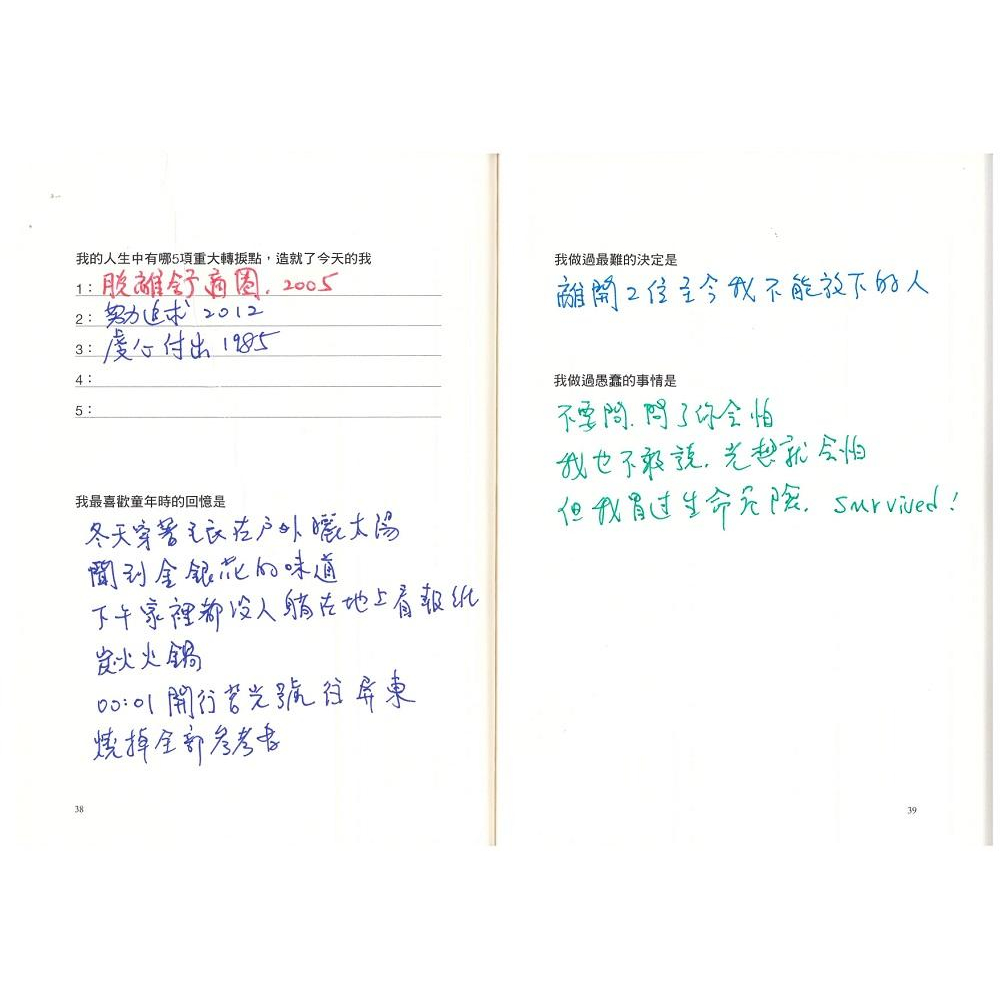 我的人生中有哪5項重大轉捩點，造就了今天的我
1： 脫離舒適圈. 2005
2： 努力追求 2012
3： 虔心付出 1985
4：
5：
我最喜歡童年時的回憶是
冬天穿著毛衣在戶外曬太陽
聞到金銀花的味道
下午家裡都沒人躺在地上看報紙
炭火火鍋
00:01 開行莒光號往屏東
燒掉全部參考書
38
我做過最難的決定是
離開2位至今我不能放下的人
我做過愚蠢的事情是
不要問. 問了你会怕
我也不敢說. 光想就会怕
但我冒过生命危險. Survived!
39